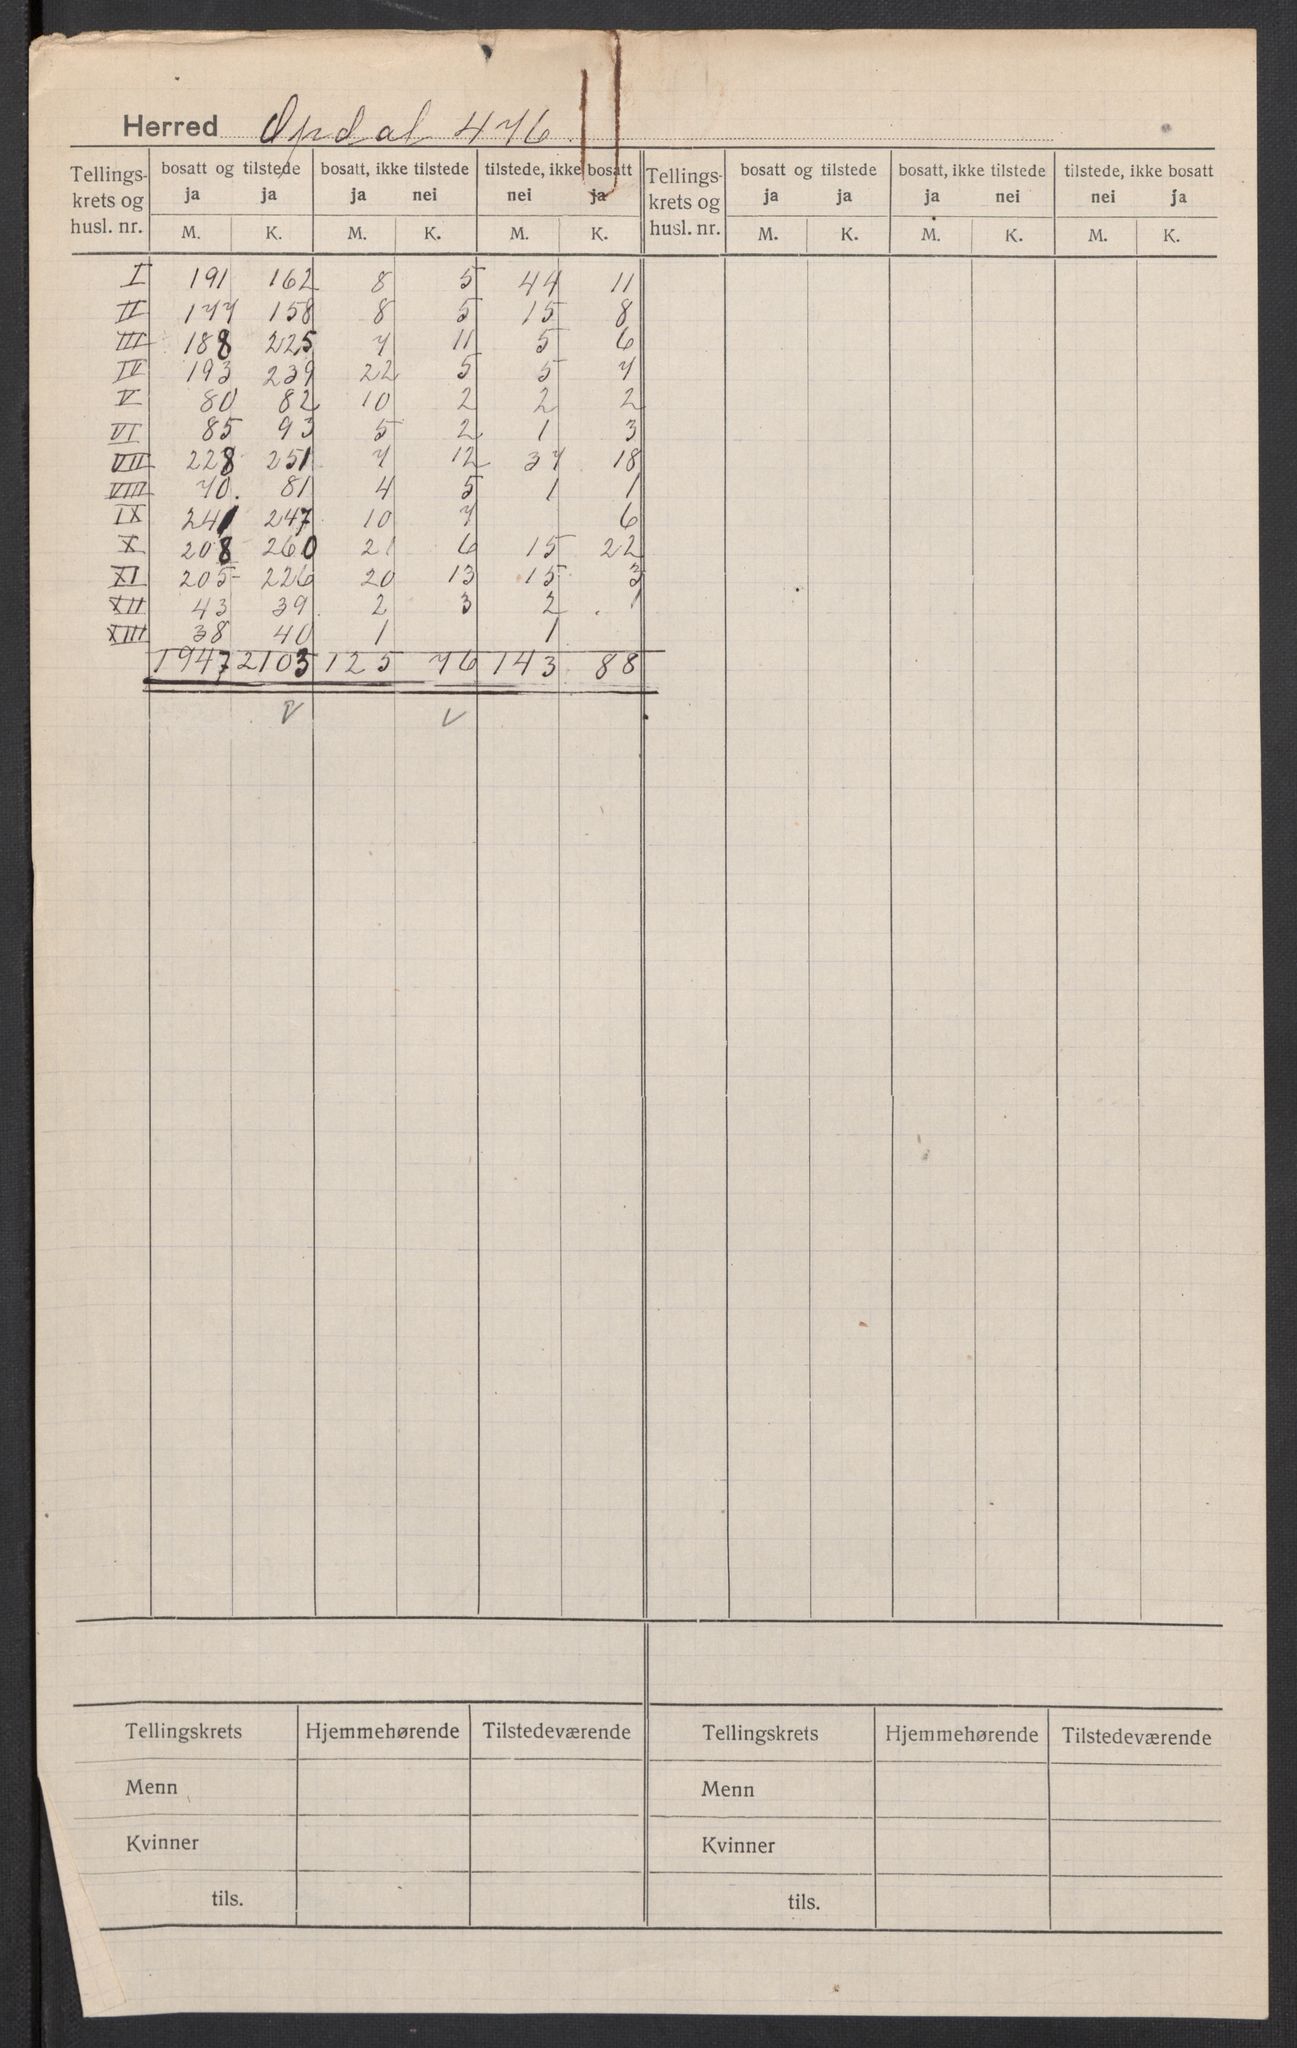 Herred Opdal 476
Tellings-krets og husl. nr. | bosatt og tilstede ja ja | bosatt, ikke tilstede ja nei | tilstede, ikke bosatt nei ja | Tellings-krets og husl. nr. | bosatt og tilstede ja ja | bosatt, ikke tilstede ja nei | tilstede, ikke bosatt nei ja
M. K. M. K. M. K. M. K. M. K. M. K.
I 191 162 8 5 44 11
II 177 158 8 5 15 8
III 188 225 7 11 5 6
IV 193 239 22 5 5 7
V 80 82 10 2 2 2
VI 85 93 5 2 1 3
VII 228 251 7 12 37 18
VIII 70. 81 4 5 1 1
IX 241 247 10 7 6
X 208 260 21 6 15 22
XI 205 226 20 13 15 3
XII 43 39 2 3 2 1
XIII 38 40 1 1
1947 2103 125 76 143 88
Tellingskrets Hjemmehørende Tilstedeværende Tellingskrets Hjemmehørende Tilstedeværende
Menn Menn
Kvinner Kvinner
tils. tils.